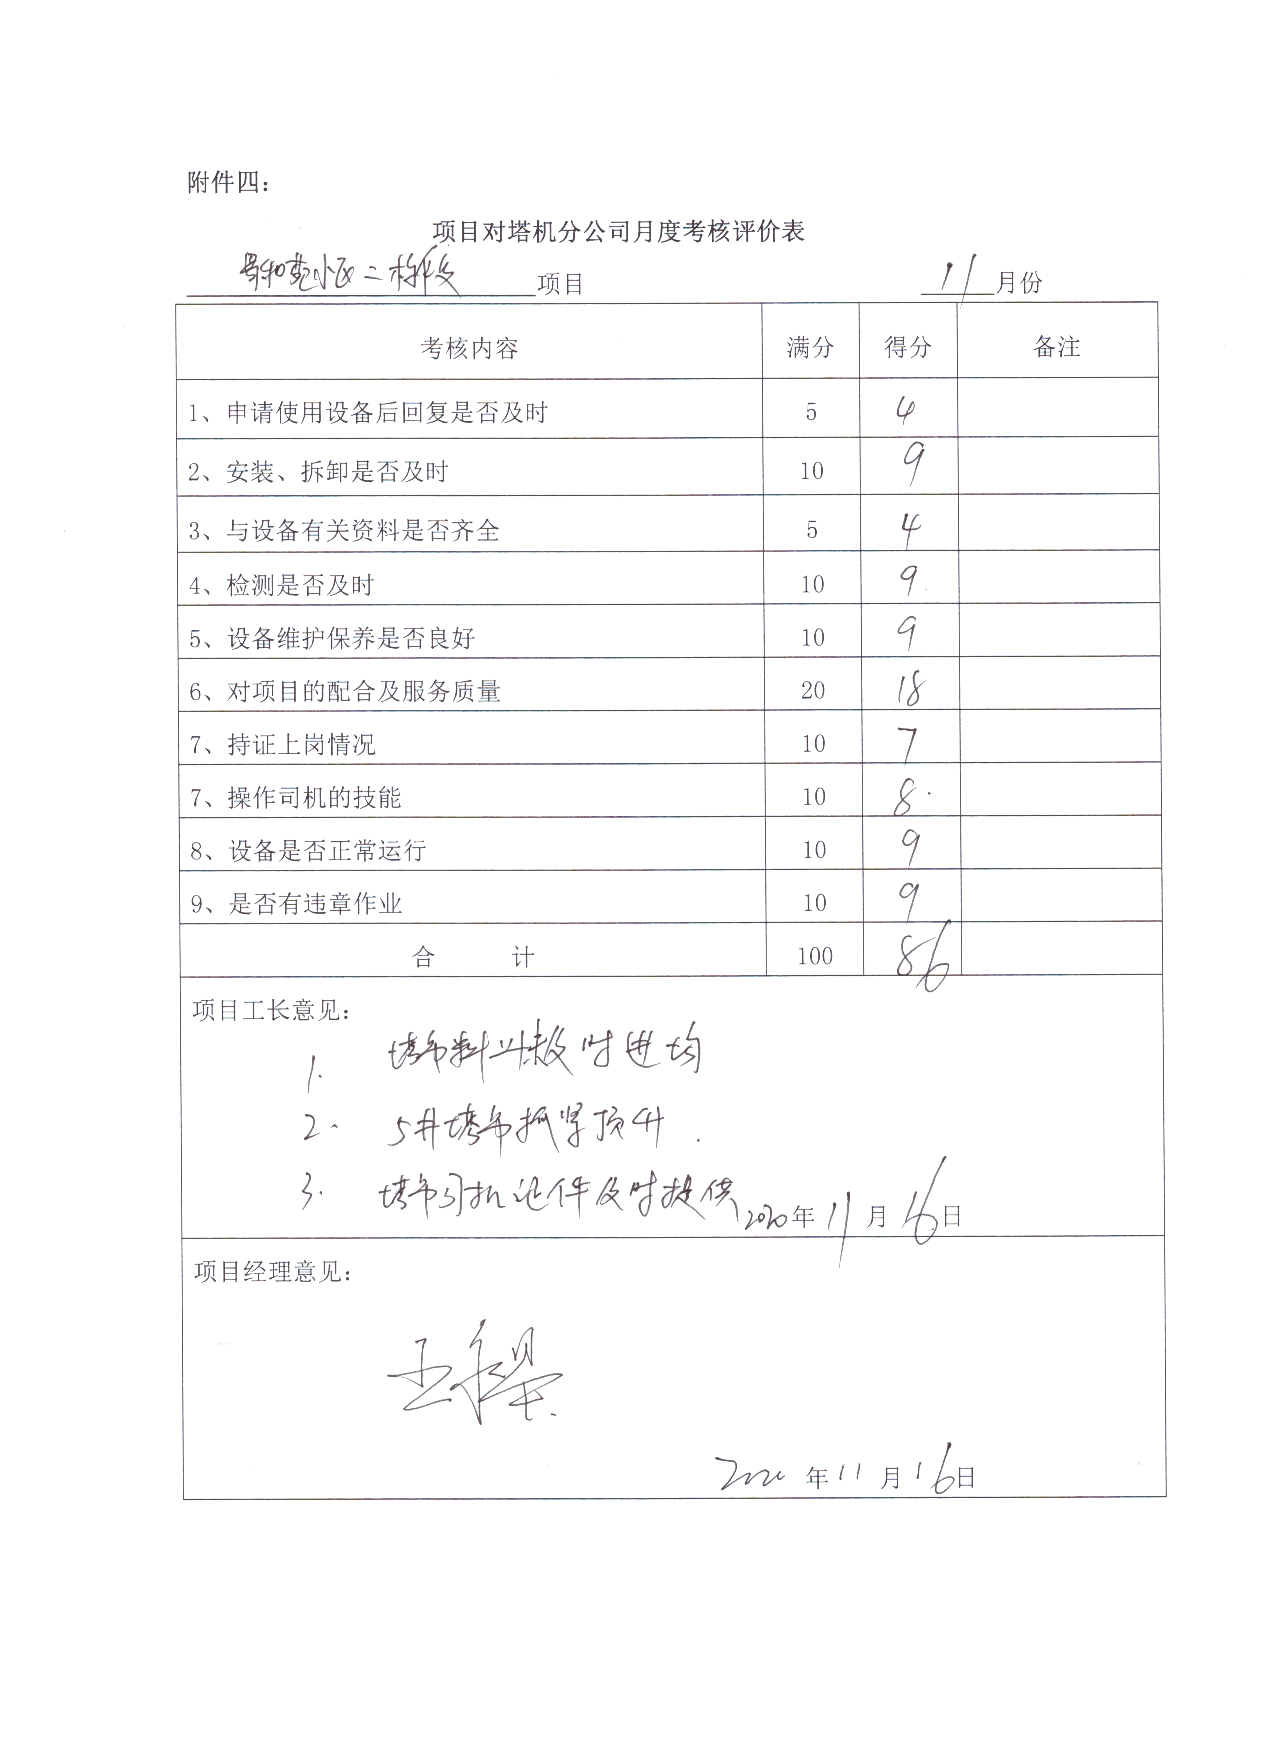 附件四：
项目对塔机分公司月度考核评价表
和苑小区二标段 项目 11月份
考核内容 满分 得分 备注
1、申请使用设备后回复是否及时 5 4
2、安装、拆卸是否及时 10 9
3、与设备有关资料是否齐全 5 4
4、检测是否及时 10 9
5、设备维护保养是否良好 10 9
6、对项目的配合及服务质量 20 18
7、持证上岗情况 10 7
7、操作司机的技能 10 8
8、设备是否正常运行 10 9
9、是否有违章作业 10 9
合 计 100 86
项目工长意见：
1. 塔吊 及时进场
2. 5#塔吊抓紧顶升.
3. 塔吊司机证件及时提供
2020年11月16日
项目经理意见：
王
2020年11月16日